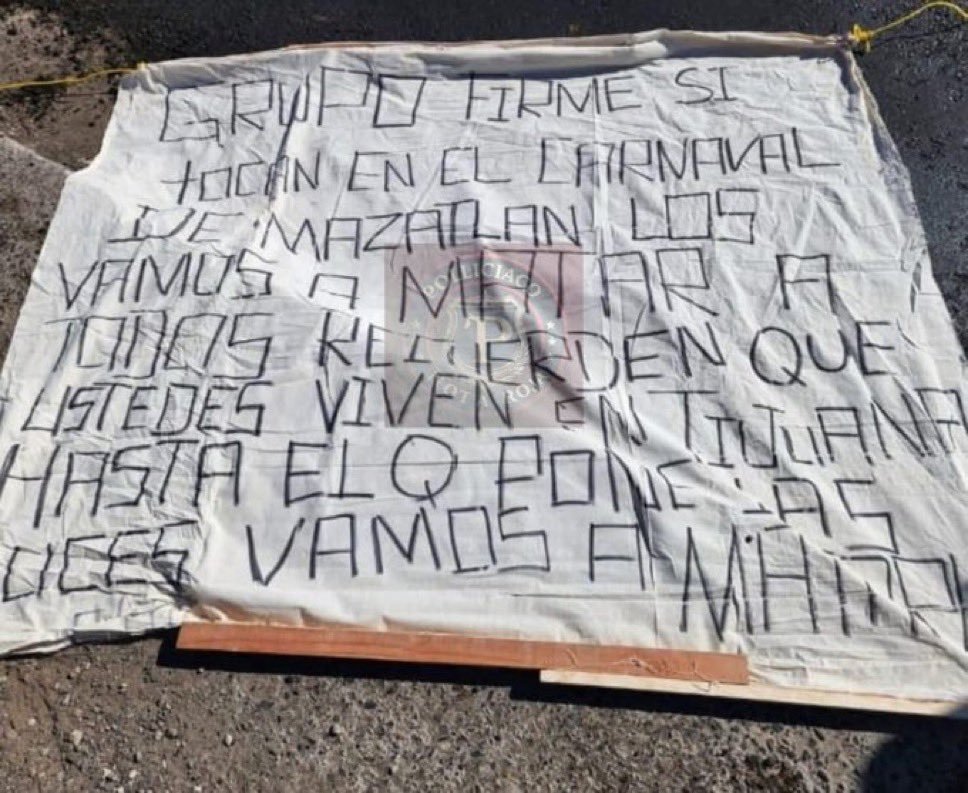 GRUPO FIRME SI
tOCAN EN EL CARNAVAL
DE MAZATLAN LOS
VAMOS A MATAR A
TODOS RECUERDEN QUE
USTEDES VIVEN EN TIJUANA
HASTA EL Q PONE LAS
LUCES VAMOS A MATAR
POLICIACO